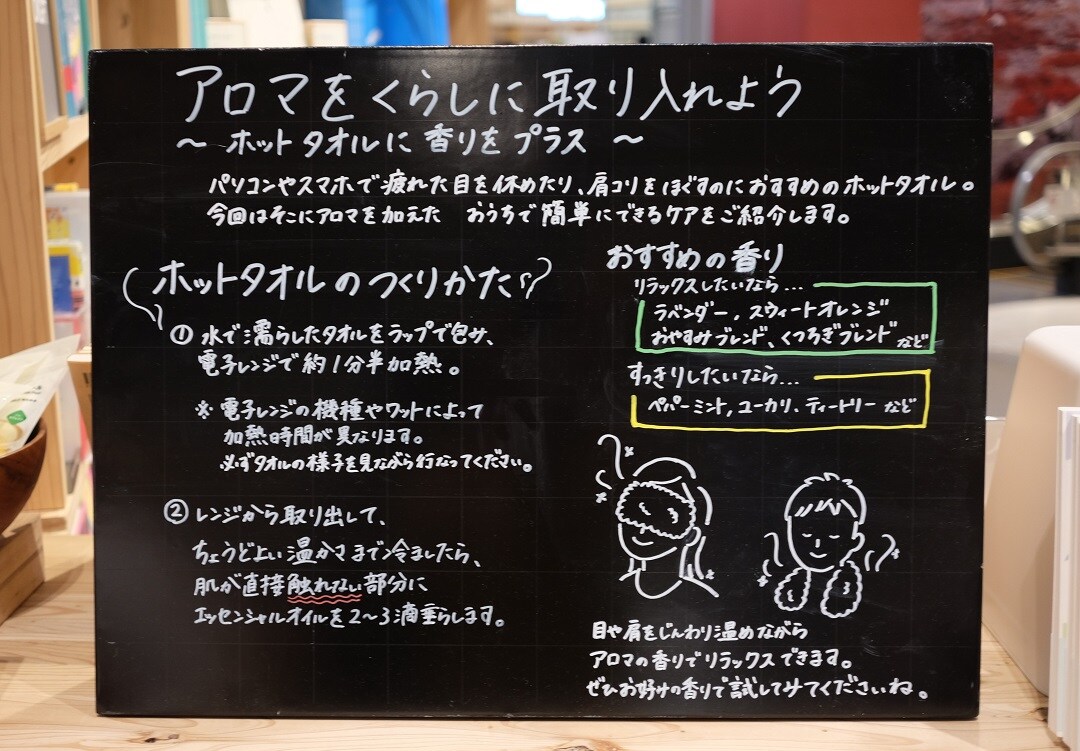 アロマをくらしに取り入れよう
～ ホットタオルに香りをプラス ～
パソコンやスマホで疲れた目を休めたり、肩コリをほぐすのにおすすめのホットタオル。
今回はそこにアロマを加えた おうちで簡単にできるケアをご紹介します。
ホットタオルのつくりかた
① 水で濡らしたタオルをラップで包み、
電子レンジで約1分半加熱。
※ 電子レンジの機種やワットによって
加熱時間が異なります。
必ずタオルの様子を見ながら行なってください。
② レンジから取り出して、
ちょうどよい温かさまで冷ましたら、
肌が直接触れない部分に
エッセンシャルオイルを2～3滴垂らします。
おすすめの香り
リラックスしたいなら...
ラベンダー, スウィートオレンジ
おやすみブレンド、くつろぎブレンド など
すっきりしたいなら...
ペパーミント, ユーカリ、ティートリー など
目や肩をじんわり温めながら
アロマの香りでリラックスできます。
ぜひお好みの香りで試してみてくださいね。